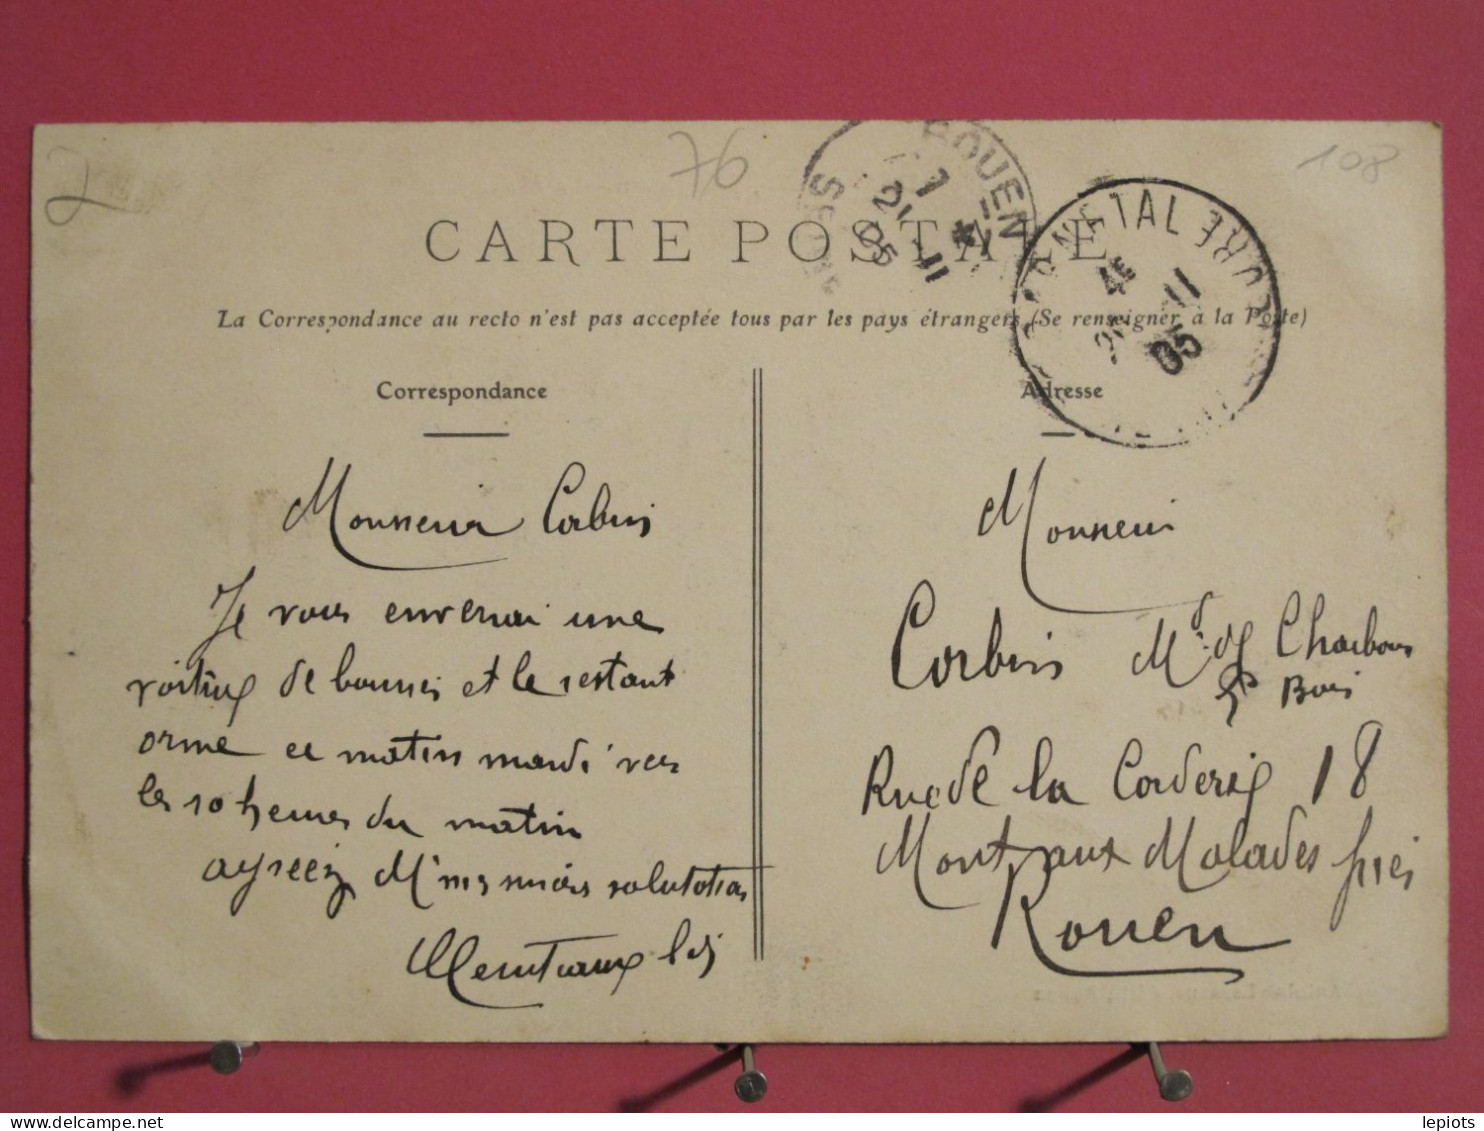 2
76
108
ROUEN
7
21 11
05
DARNETAL
4
11
05
CARTE POSTALE
La Correspondance au recto n'est pas acceptée tous par les pays étrangers (Se renseigner à la Poste)
Correspondance
Adresse
Monsieur Corbin
Je vous enverrai une
voiture de bourrées et le restant
orme ce matin mardi vers
les 10 heures du matin
M
salutation
Monsieur
Corbin Md de Charbons
Bois
Rue de la Corderie 18
Mont aux Malades près
Rouen
lepiots